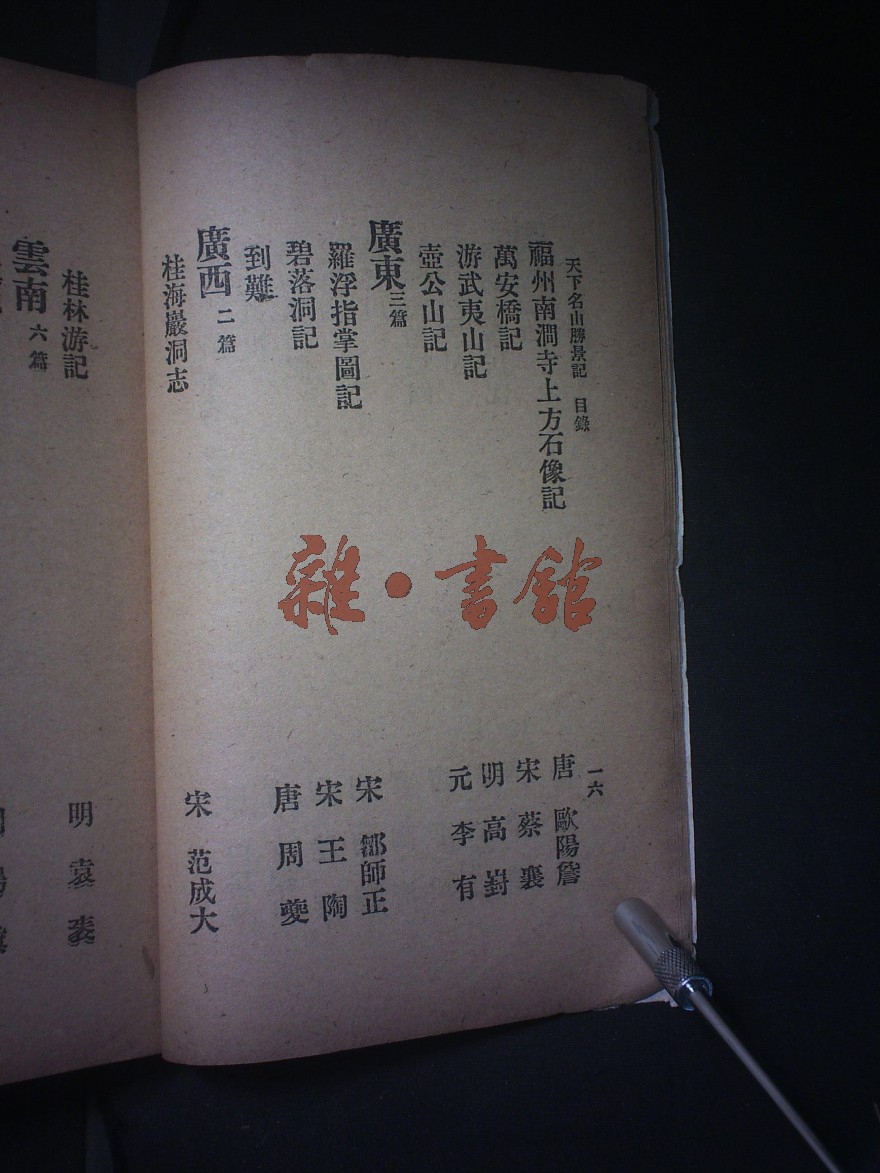 天下名山勝景記 目錄 一六
福州南澗寺上方石像記 唐 歐陽詹
萬安橋記 宋 蔡襄
游武夷山記 明 高
壺公山記 元 李有
廣東 三篇
羅浮指掌圖記 宋 鄒師正
碧落洞記 宋 王陶
到難 唐 周夔
廣西 二篇
桂海巖洞志 宋 范成大
桂林游記 明 袁袠
雲南 六篇
雜·書館